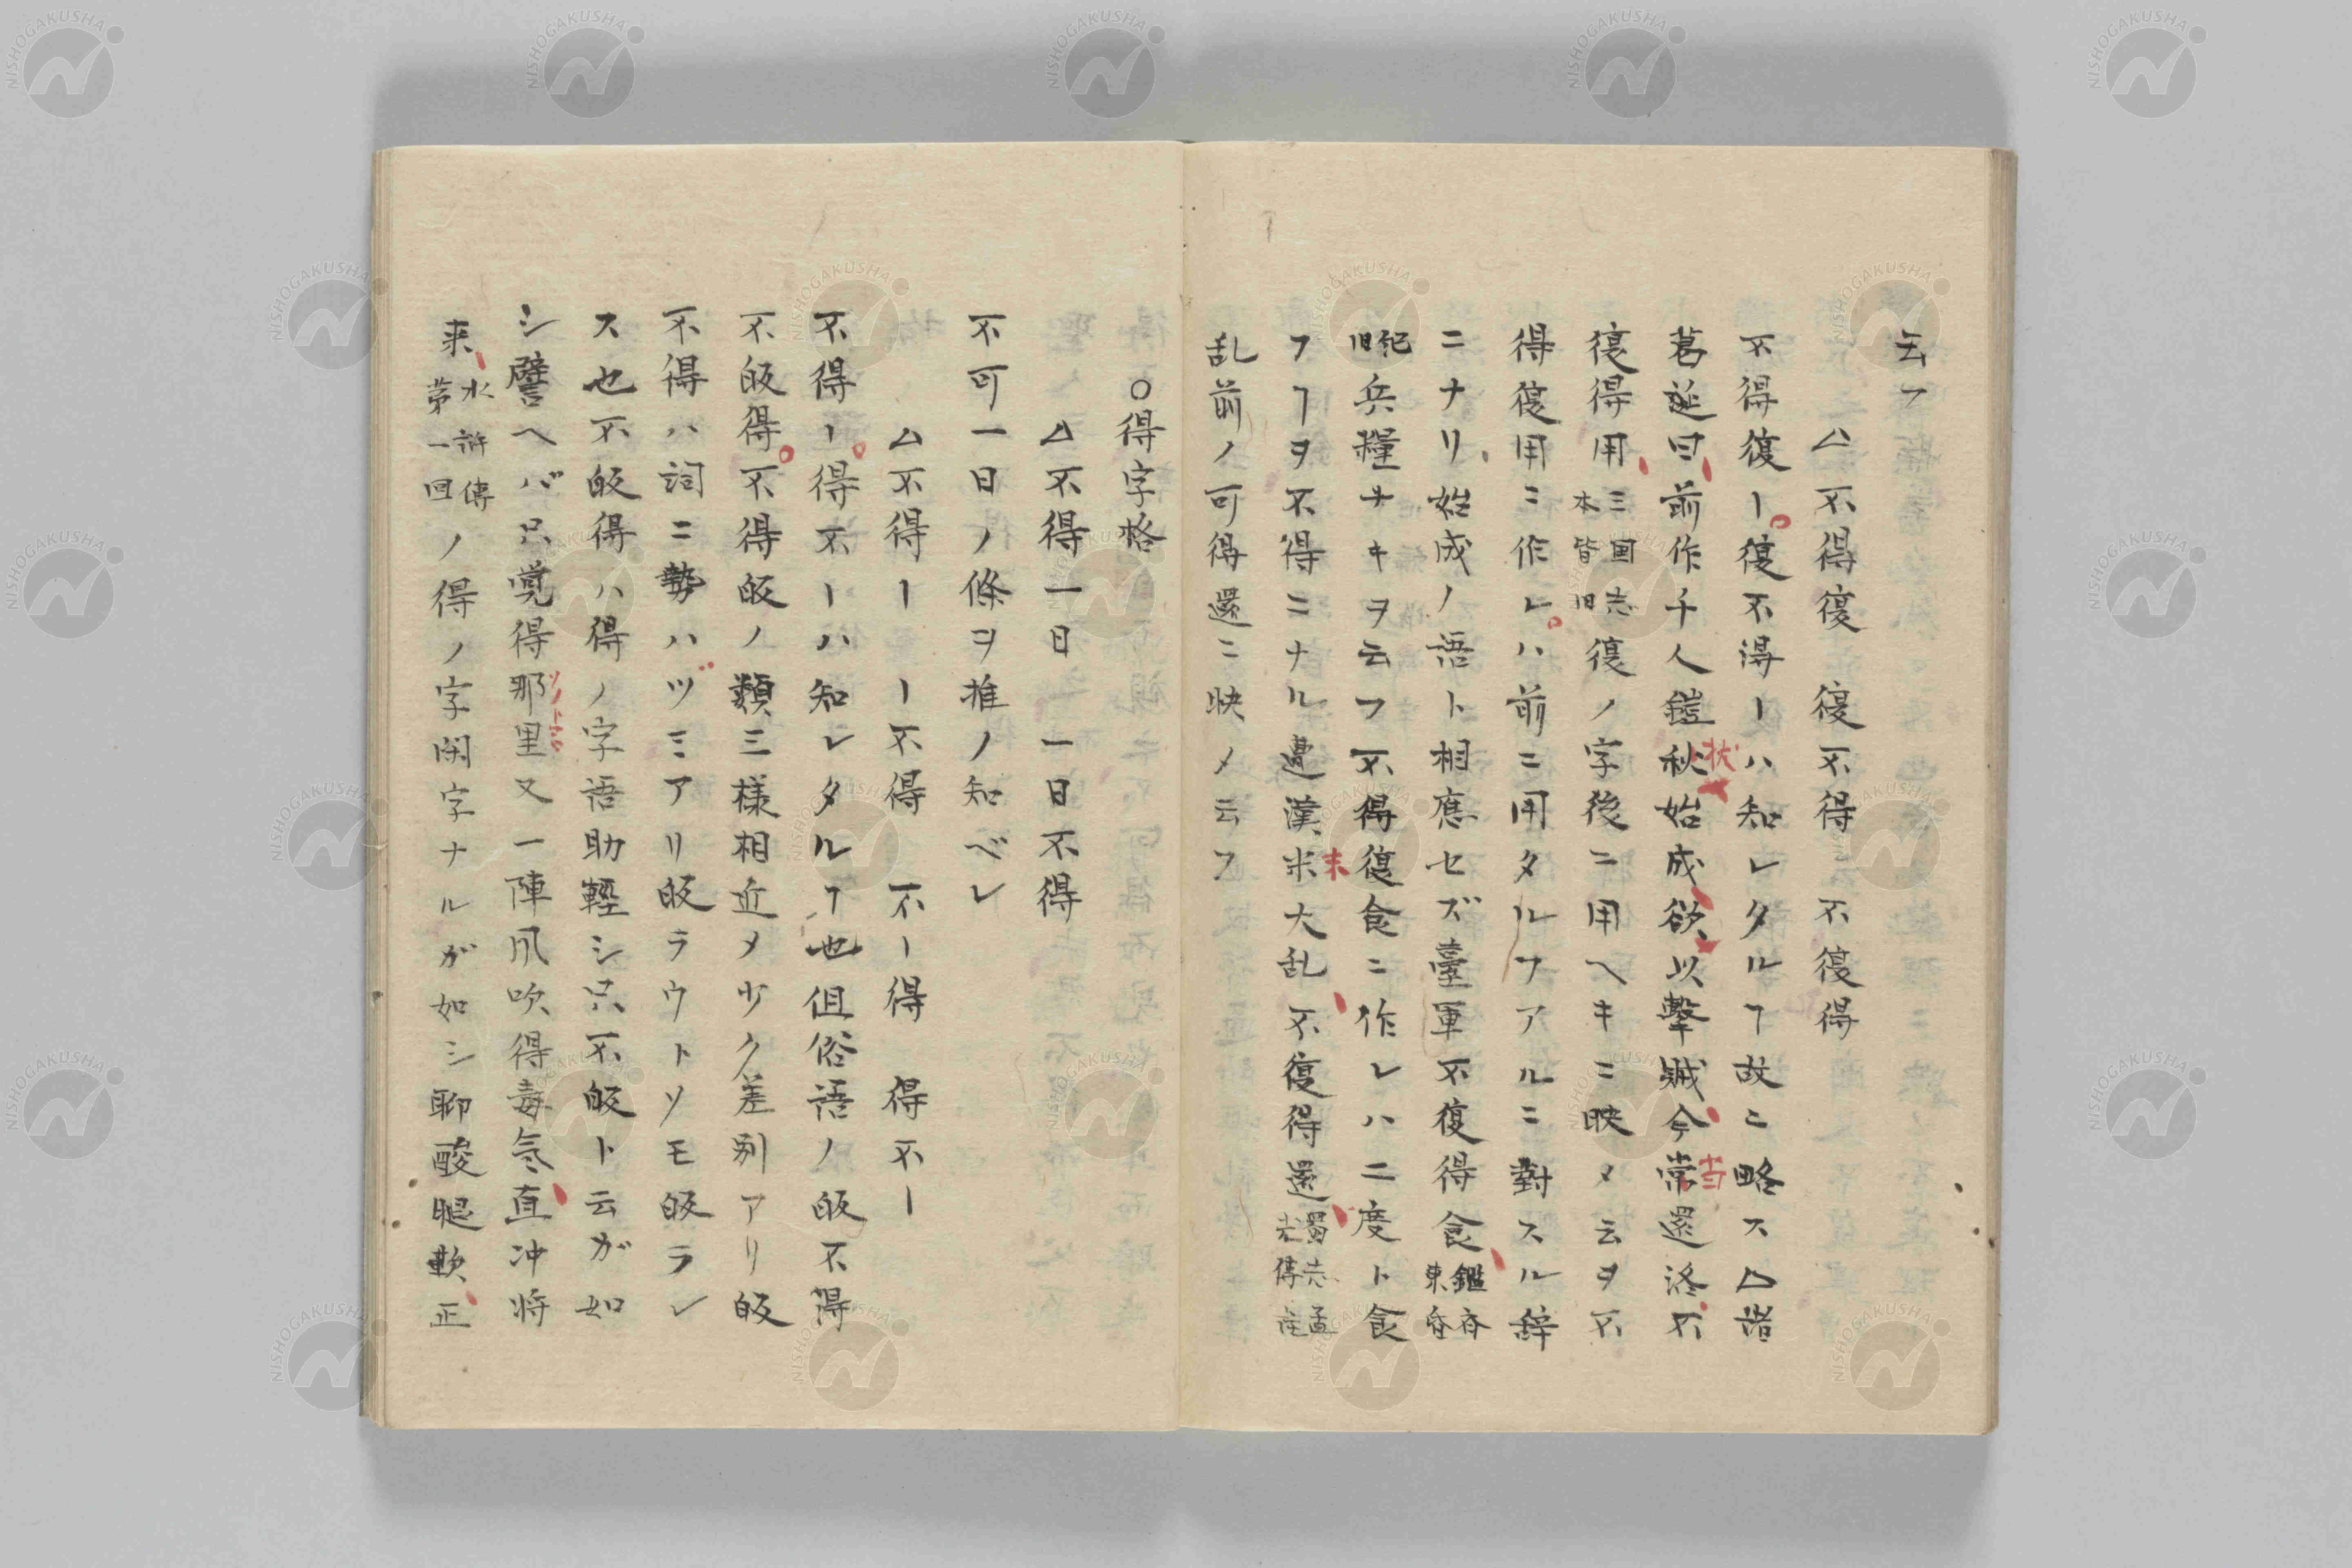 云フ
△不得復　復不得　不復得
不得復ー復不得ーハ知レタルヿ故ニ略ス△諸
葛誕曰前作千人鎧秋状始成欲以撃賊今常当還洛不
復得用三国志本皆旧復ノ字後ニ用ヘキニ映メ云ヲ不
得復用ニ作レハ前ニ用タルフアルニ對スル辞
ニナリ始成ノ語ト相應セズ臺軍不復得食鑑斉東昏
紀旧兵糧ナキヲ云フ不得復食ニ作レハ二度ト食
フヿヲ不得ニナル遭漢米末大乱不復得還蜀志孟光傳
乱前ノ可得還ニ映メ云フ
○得字格
△不得一日　一日不得
不可一日ノ條ヲ推ノ知ベレ
△不得ー　ー不得　不ー得　得不ー
不得ー得不ーハ知レタルヿ也但俗語ノ皈不得
不皈得不得皈ノ類三様相近メ少ク差別アリ皈
不得ハ詞ニ勢ハヅミアリ皈ラウトソモ皈ラレ
ス也不皈得ハ得ノ字語助輕シ只不皈ト云ガ如
シ譬ヘバ只覚得那里又一陣風吹得毒氣直冲将
来水滸傳第一回ノ得ノ字閑字ナルガ如シ聊酸腿軟正
NISHOGAKUSHA